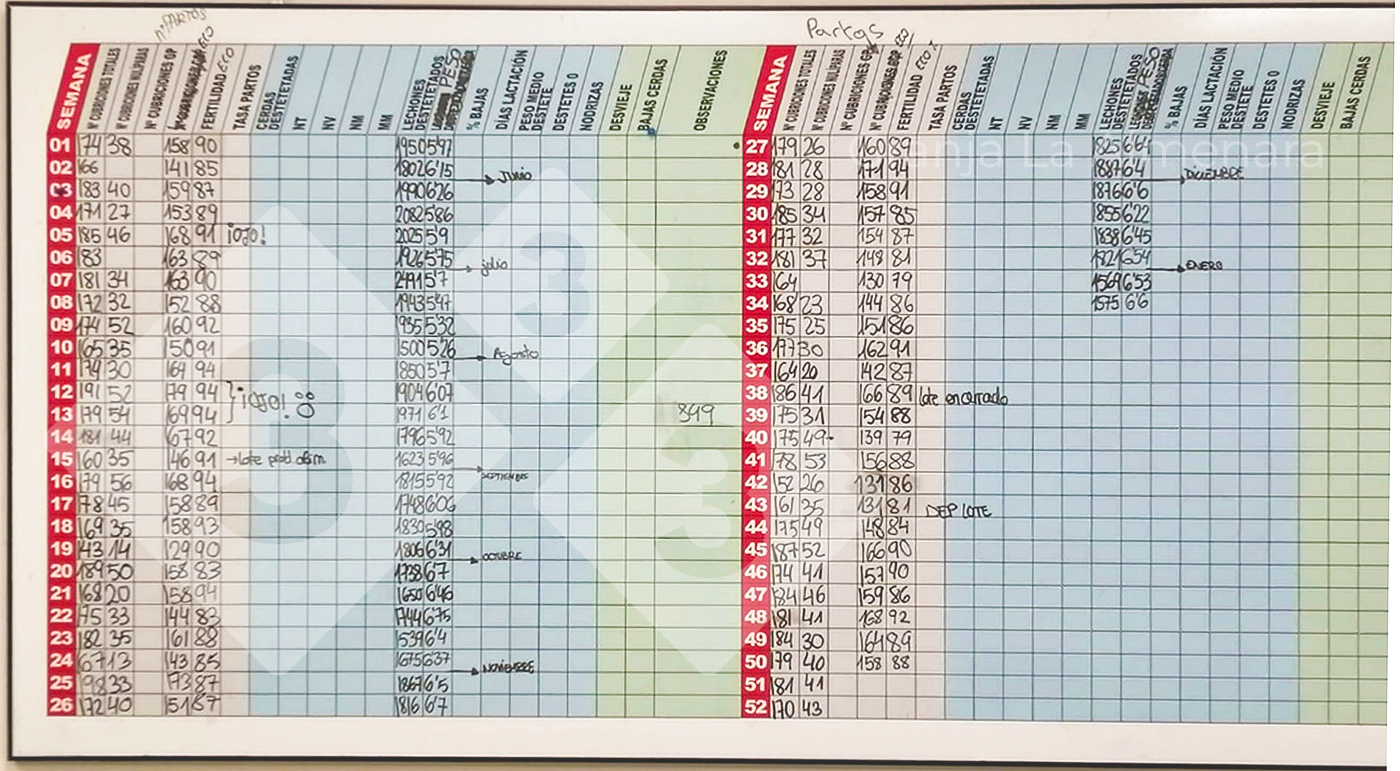 Nº PARTOS ECO ECO
SEMANA Nº CUBRICIONES TOTALES Nº CUBRICIONES NULIPARAS Nº CUBRICIONES GP FERTILIDAD TASA PARTOS CERDAS DESTETETADAS NT NV NM MM LECHONES DESTETETADOS PESO % BAJAS DÍAS LACTACIÓN PESO MEDIO DESTETE DESTETES 0 NODRIZAS DESVIEJE BAJAS CERDAS OBSERVACIONES
01 174 38 158 90 1950 5'97
02 166 141 85 1802 6'15 → JUNIO
03 183 40 159 87 1990 6'26
04 171 27 153 89 2082 5'86
05 185 46 168 91 ¡OJO! 2025 5'9
06 183 163 89 1926 5'75 → julio
07 181 34 163 90 2491 5'7
08 172 32 152 88 1943 5'47
09 174 52 160 92 1935 5'32
10 165 35 150 91 1500 5'26 → Agosto
11 179 30 169 94 1850 5'7
12 191 52 179 94 ¡OJO! 1904 6'07
13 179 54 169 94 1971 6'1 849
14 181 44 167 92 1796 5'92
15 160 35 146 91 → lote 1623 5'96 → SEPTIEMBRE
16 179 56 168 94 1815 5'92
17 178 45 158 89 1748 6'06
18 169 35 158 93 1830 5'98
19 143 14 129 90 1806 6'31 → OCTUBRE
20 189 50 158 83 1738 6'7
21 168 20 158 94 1650 6'46
22 175 33 144 83 1744 6'75
23 182 35 161 88 1539 6'4
24 167 13 143 85 1675 6'37 → NOVIEMBRE
25 198 33 173 87 1867 6'5
26 172 40 151 87 1816 6'7
Partos ECO ECO
SEMANA Nº CUBRICIONES TOTALES Nº CUBRICIONES NULIPARAS Nº CUBRICIONES GP FERTILIDAD TASA PARTOS CERDAS DESTETETADAS NT NV NM MM LECHONES DESTETETADOS PESO % BAJAS DÍAS LACTACIÓN PESO MEDIO DESTETE DESTETES 0 NODRIZAS DESVIEJE BAJAS CERDAS
27 179 26 160 89 1825 6'64
28 181 28 171 94 1887 6'4 → DICIEMBRE
29 173 28 158 91 1876 6'6
30 185 34 157 85 1855 6'22
31 177 32 154 87 1838 6'45
32 181 37 148 81 1821 6'54 → ENERO
33 164 130 79 1569 6'53
34 168 23 144 86 1575 6'6
35 175 25 151 86
36 177 30 162 91
37 164 20 142 87
38 186 41 166 89 lote encerrado
39 175 31 154 88
40 175 49 139 79
41 178 53 156 88
42 152 26 131 86
43 161 35 131 81 DEP LOTE
44 175 49 148 84
45 187 52 166 90
46 174 41 157 90
47 184 46 159 86
48 181 41 168 92
49 184 30 164 89
50 179 40 158 88
51 181 41
52 170 43
333